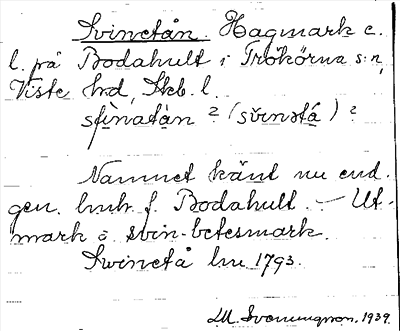 Svinetån. Hagmark e.
l. på Bodahult i Trökörna s:n,
Viste hd, Skb. l.
sfinatån ? (svinstá) ?
Namnet känt nu end.
gen. lmh. f. Bodahult. — Ut-
mark o svin-betesmark.
Swinetå lm 1793.
M. Svenungson. 1939.